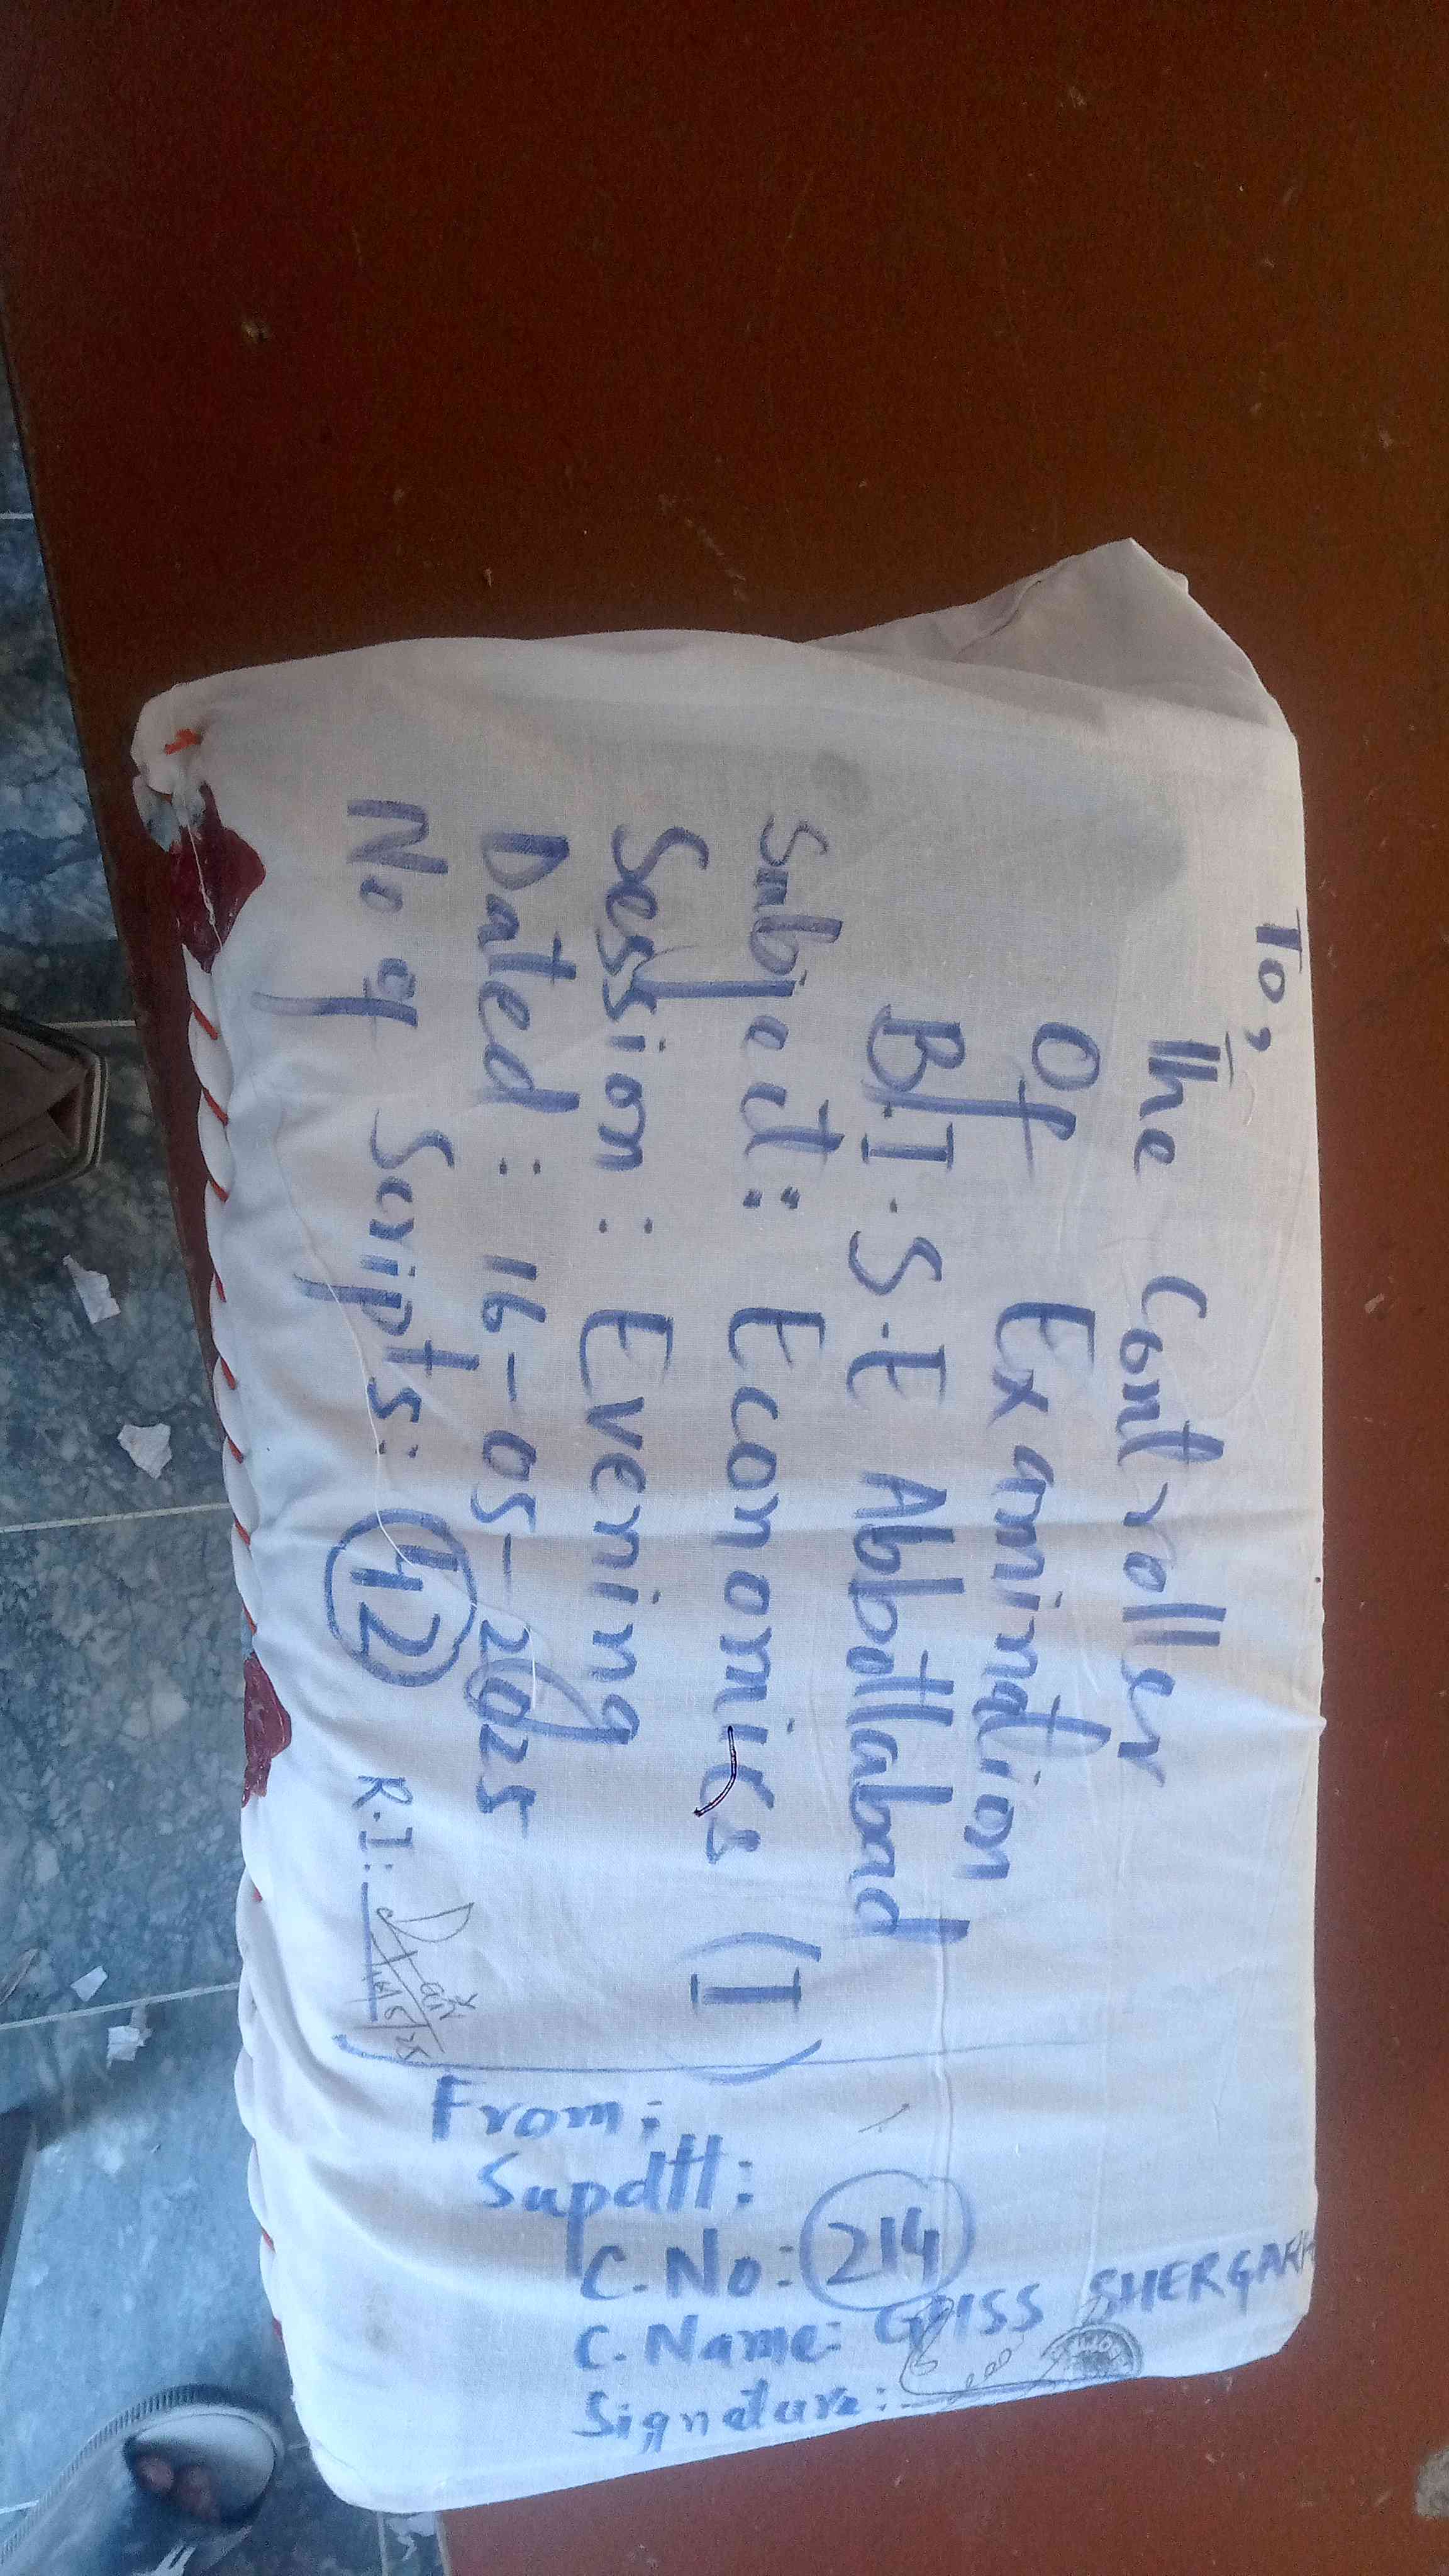 To,
The Controller
Of Examination
B.I.S.E Abbottabad
Subject: Economics (I)
Session: Evening
Dated: 16-05-2025
No of Scripts: 42
R.I: 16/5/25
From;
Supdtt:
C.No: 214
C.Name: GHSS SHERGARH
Signature: